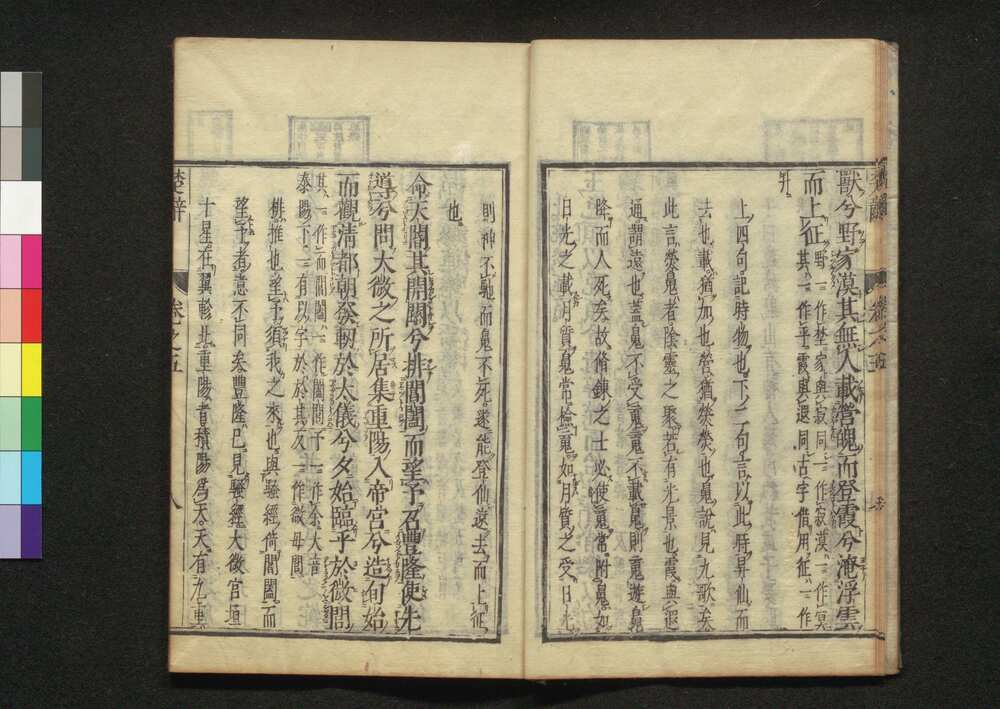 獸兮野家漠其無人載營魄而登霞兮淹浮雲
而上征野一作埜家與寂同一作寂漠一作寞
其一作乎霞與遐同古字借用征一作
升
上四句記時物也下二句言以此時昇仙而
去也載猶加也營猶熒熒也鬼說見九歌矣
此言熒鬼者陰靈之聚若有光景也霞與遐
通謂遠也蓋鬼不受䰟䰟不載鬼則䰟遊鬼
降而人死矣故脩鍊之士必使䰟常附鬼如
日光之載月質鬼常檢䰟如月質之受日光
則神不馳而鬼不死遂能登仙遠去而上征
也
命天閽其開關兮排閶闔而望予召豐隆使先
導兮問大微之所居集重陽入帝宮兮造旬始
而觀清都朝發軔於太儀兮夕始臨乎於微閭
其一作而閶闔一作闔閭予一作余大音
泰陽下一有以字於於其反一作微母閭
排推也望予須我之來也與騷經倚閶闔而
望予者意不同矣豐隆已見騷經大微宮垣
十星在翼軫北重陽者積陽爲天天有九重
楚辭
卷之五
八